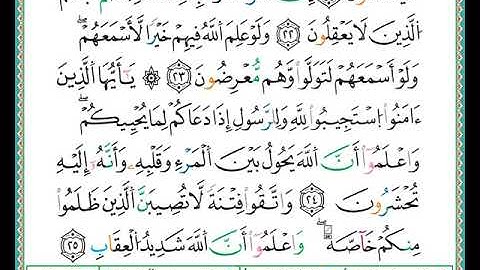 ٱلَّذِينَ لَا يَعۡقِلُونَ ٢٢ وَلَوۡ عَلِمَ ٱللَّهُ فِيهِمۡ خَيۡرٗا لَّأَسۡمَعَهُمۡۖ
وَلَوۡ أَسۡمَعَهُمۡ لَتَوَلَّواْ وَّهُم مُّعۡرِضُونَ ٢٣ ۞ يَٰٓأَيُّهَا ٱلَّذِينَ
ءَامَنُواْ ٱسۡتَجِيبُواْ لِلَّهِ وَلِلرَّسُولِ إِذَا دَعَاكُمۡ لِمَا يُحۡيِيكُمۡۖ
وَٱعۡلَمُوٓاْ أَنَّ ٱللَّهَ يَحُولُ بَيۡنَ ٱلۡمَرۡءِ وَقَلۡبِهِۦ وَأَنَّهُۥٓ إِلَيۡهِ
تُحۡشَرُونَ ٢٤ وَٱتَّقُواْ فِتۡنَةٗ لَّا تُصِيبَنَّ ٱلَّذِينَ ظَلَمُواْ
مِنكُمۡ خَآصَّةٗۖ وَٱعۡلَمُوٓاْ أَنَّ ٱللَّهَ شَدِيدُ ٱلۡعِقَابِ ٢٥